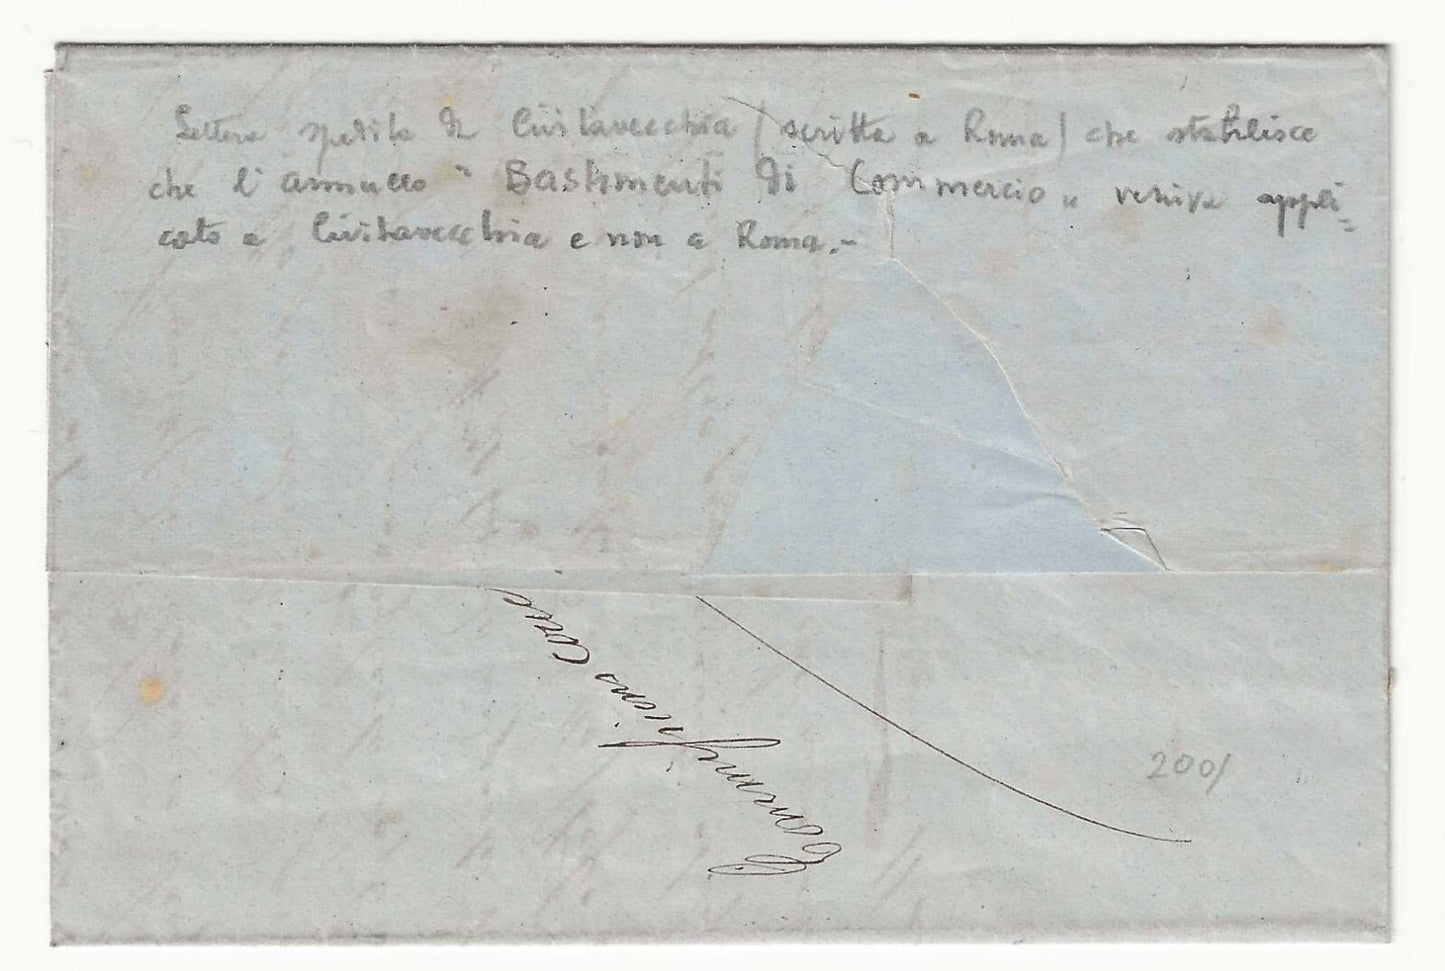 Lettera spedita da Civitavecchia (scritta a Roma) che stabilisce
che l'annullo " Bastimenti di Commercio „ veniva appli=
cato a Civitavecchia e non a Roma.-
200/